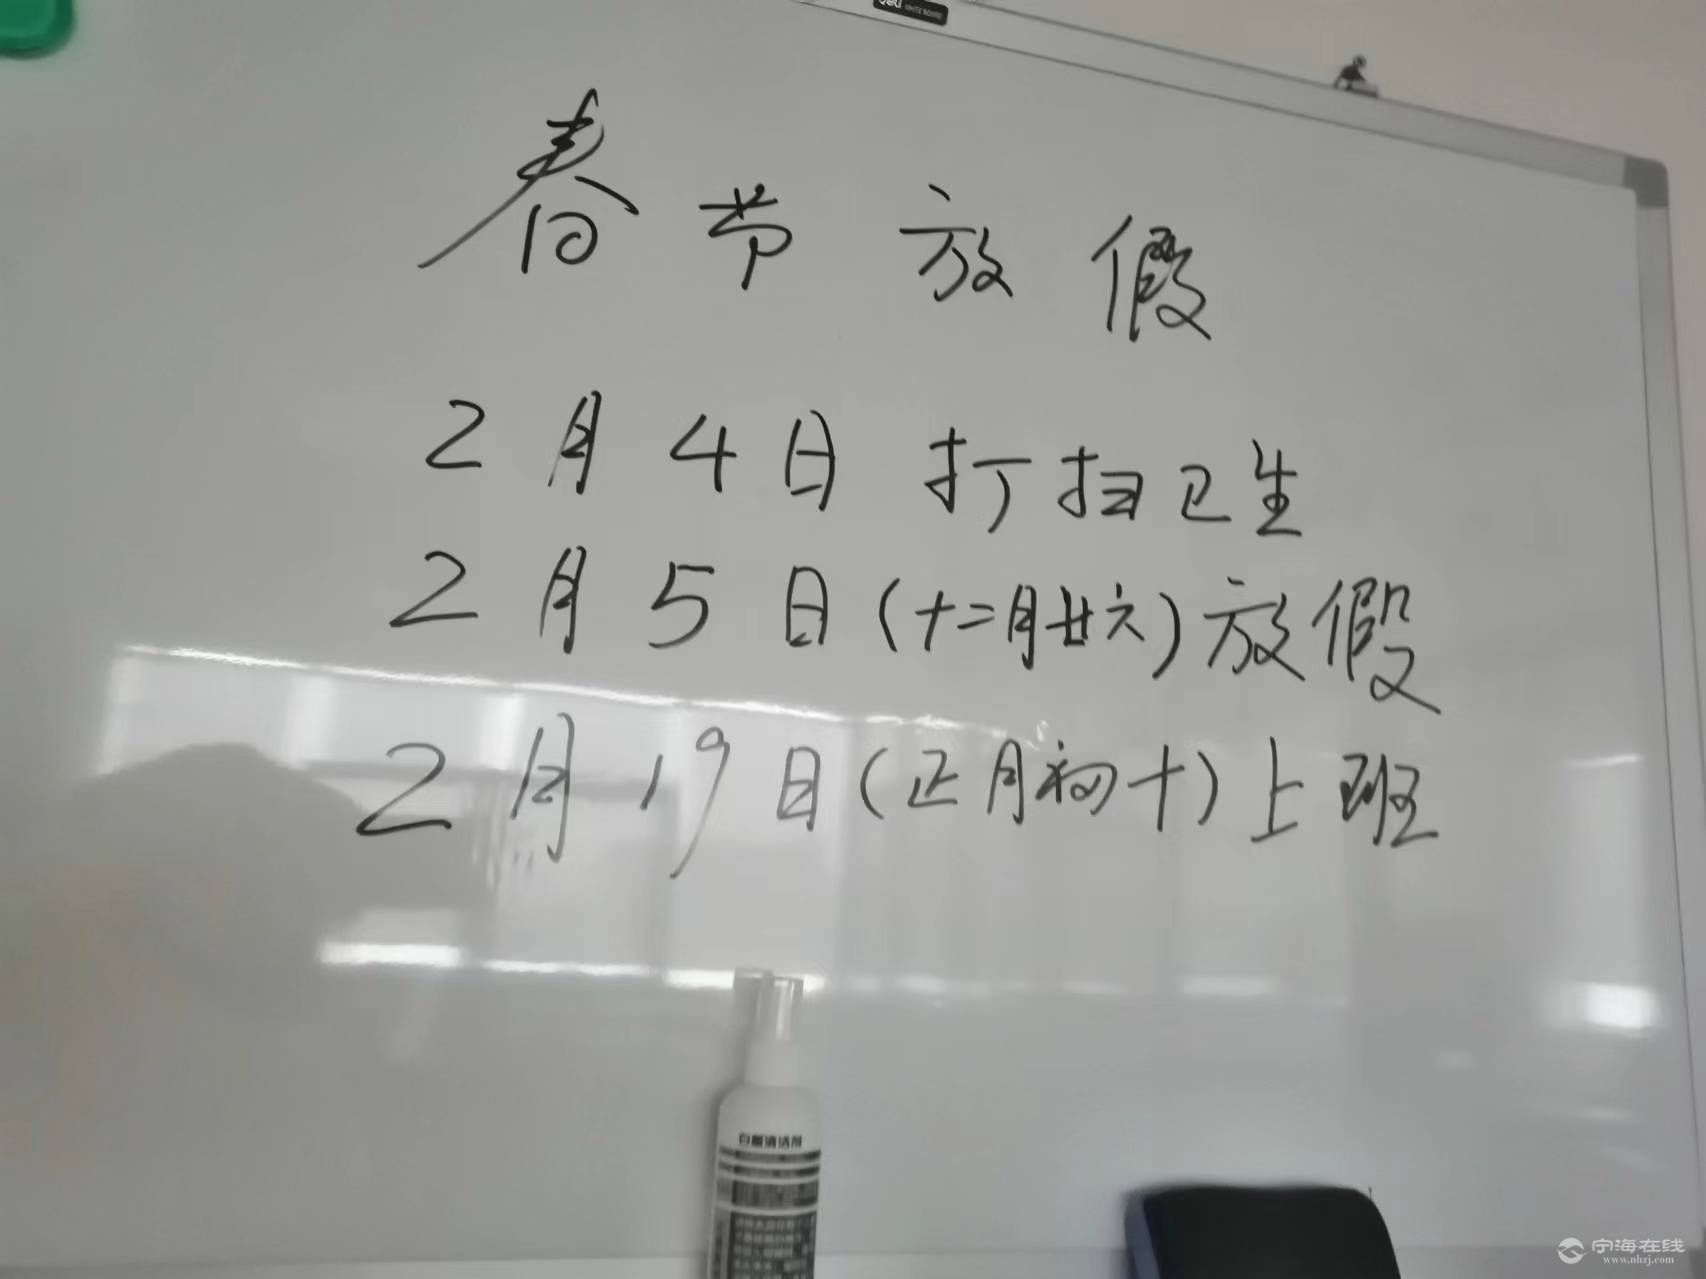 春节放假
2月4日 打扫卫生
2月5日(十二月廿六)放假
2月19日(正月初十)上班
白板清洁剂
宁海在线
www.nhzj.com